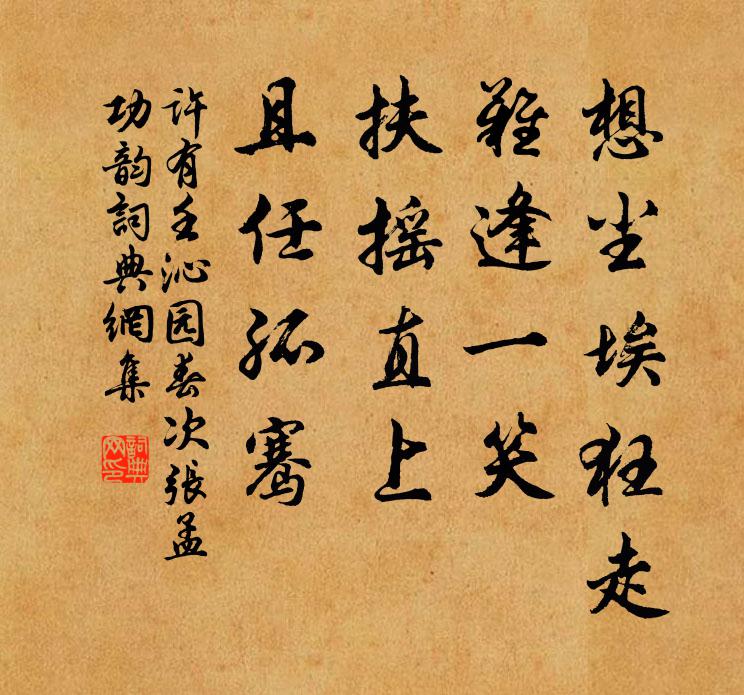 想尘埃狂走
难逢一笑
扶摇直上
且任孤骞
许有壬沁园春次張孟
功韵詞典網集
詞典网印